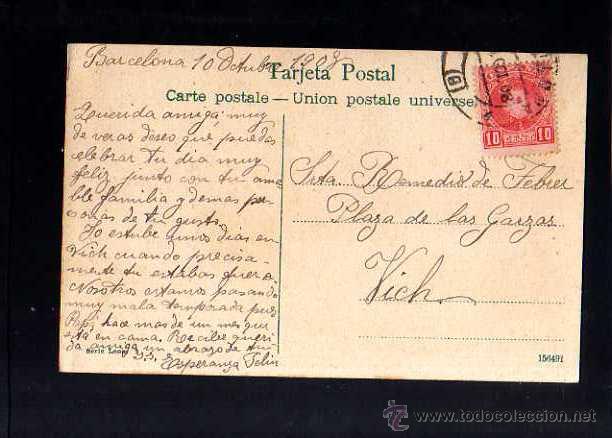 Barcelona 10 Octubre 1908
Tarjeta Postal
Carte postale — Union postale universelle
Querida amiga muy
de veras deseo que puedas
celebrar tu dia muy
feliz junto con tu ama
ble familia y demas per
sonas de tu gusto.
Yo estube unos dias en
Vich cuando precisa-
mente tu estabas fuera
Nosotros estamos pasando
muy mala temporada pues
Papá hace mas de un mes que
está en cama. Recibe queri
da amiga un abrazo de tu
Esperanza
Serie Leon
Srta Remedio de Febrer
Plaza de las Garzas
Vich
10 10
156491
www.todocoleccion.net